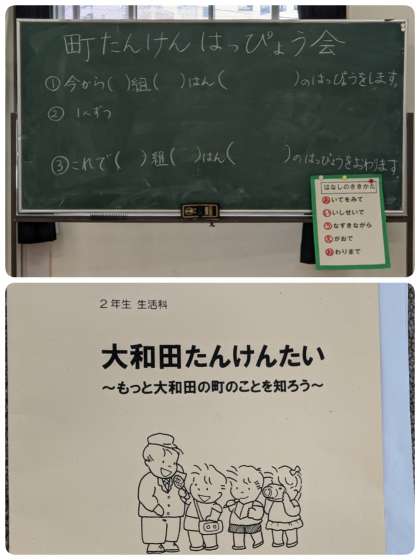 町たんけん はっぴょう会
①今から( )組( )はん( )のはっぴょうをします。
② 1人ずつ
③これで( )組( )はん( )のはっぴょうをおわります。
はなしのききかた
あいてをみて
いしせいで
うなずきながら
えがおで
おわりまで
2年生 生活科
大和田たんけんたい
～もっと大和田の町のことを知ろう～